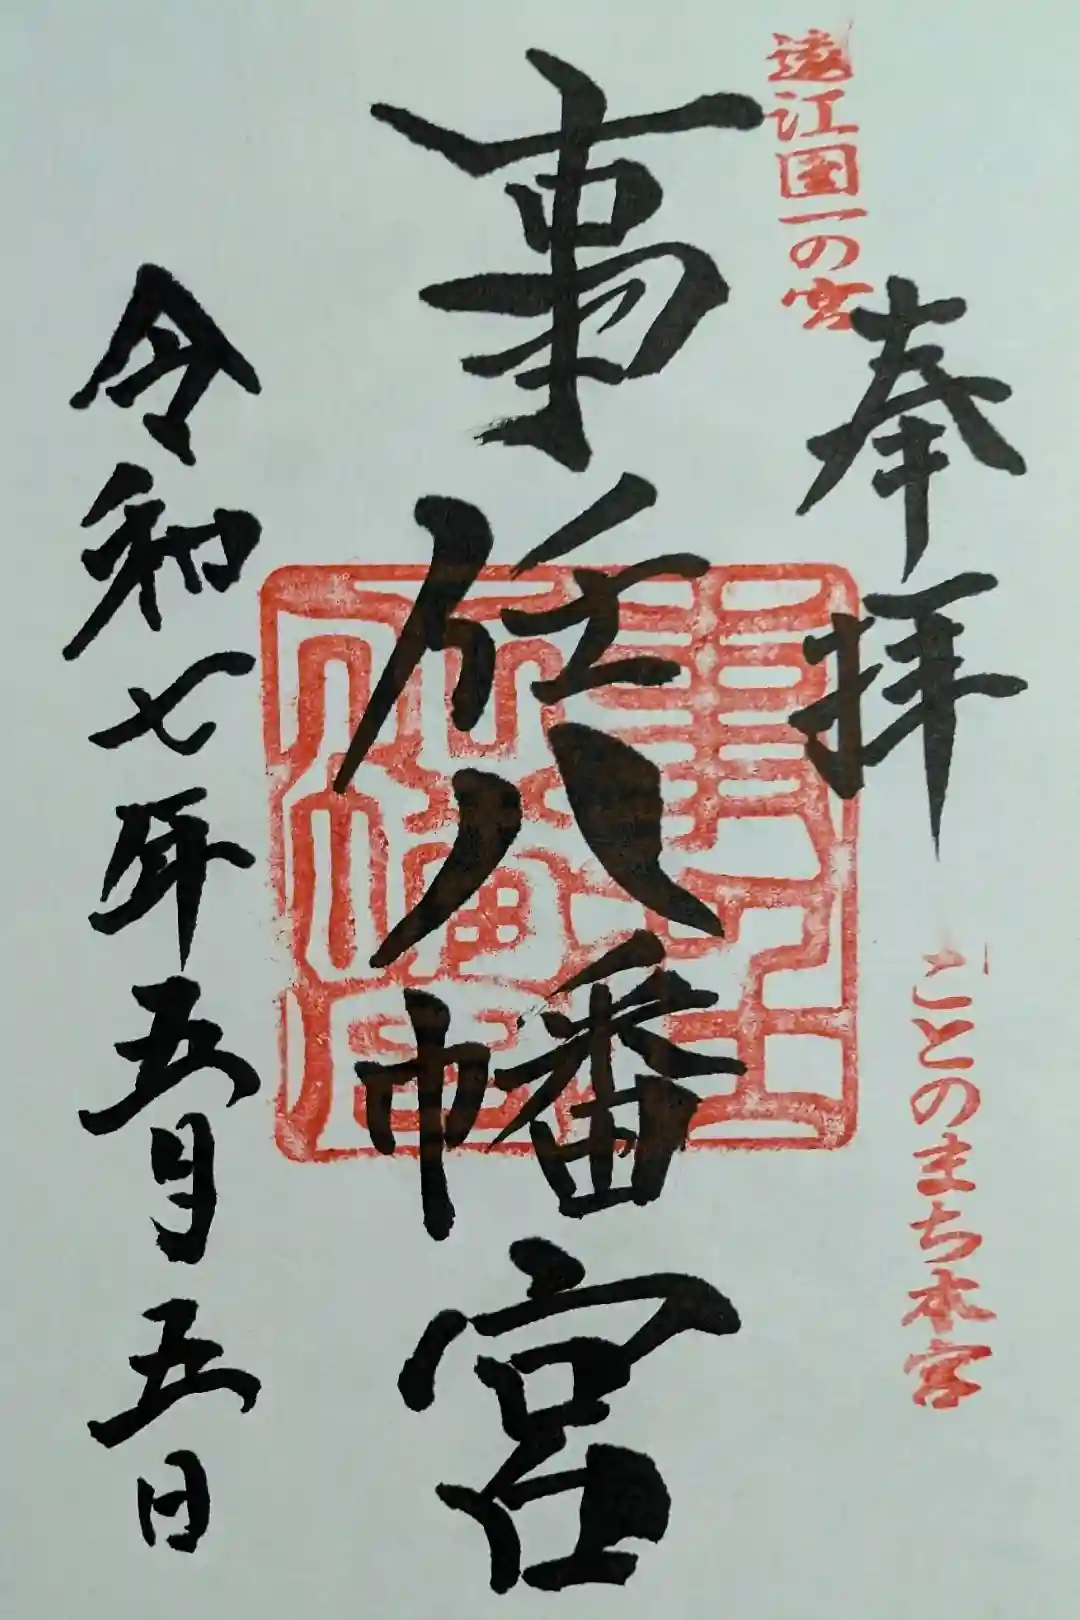 遠江国一の宮
奉拝
ことのまち本宮
事任八幡宮
事任
八幡宮
令和七年五月五日